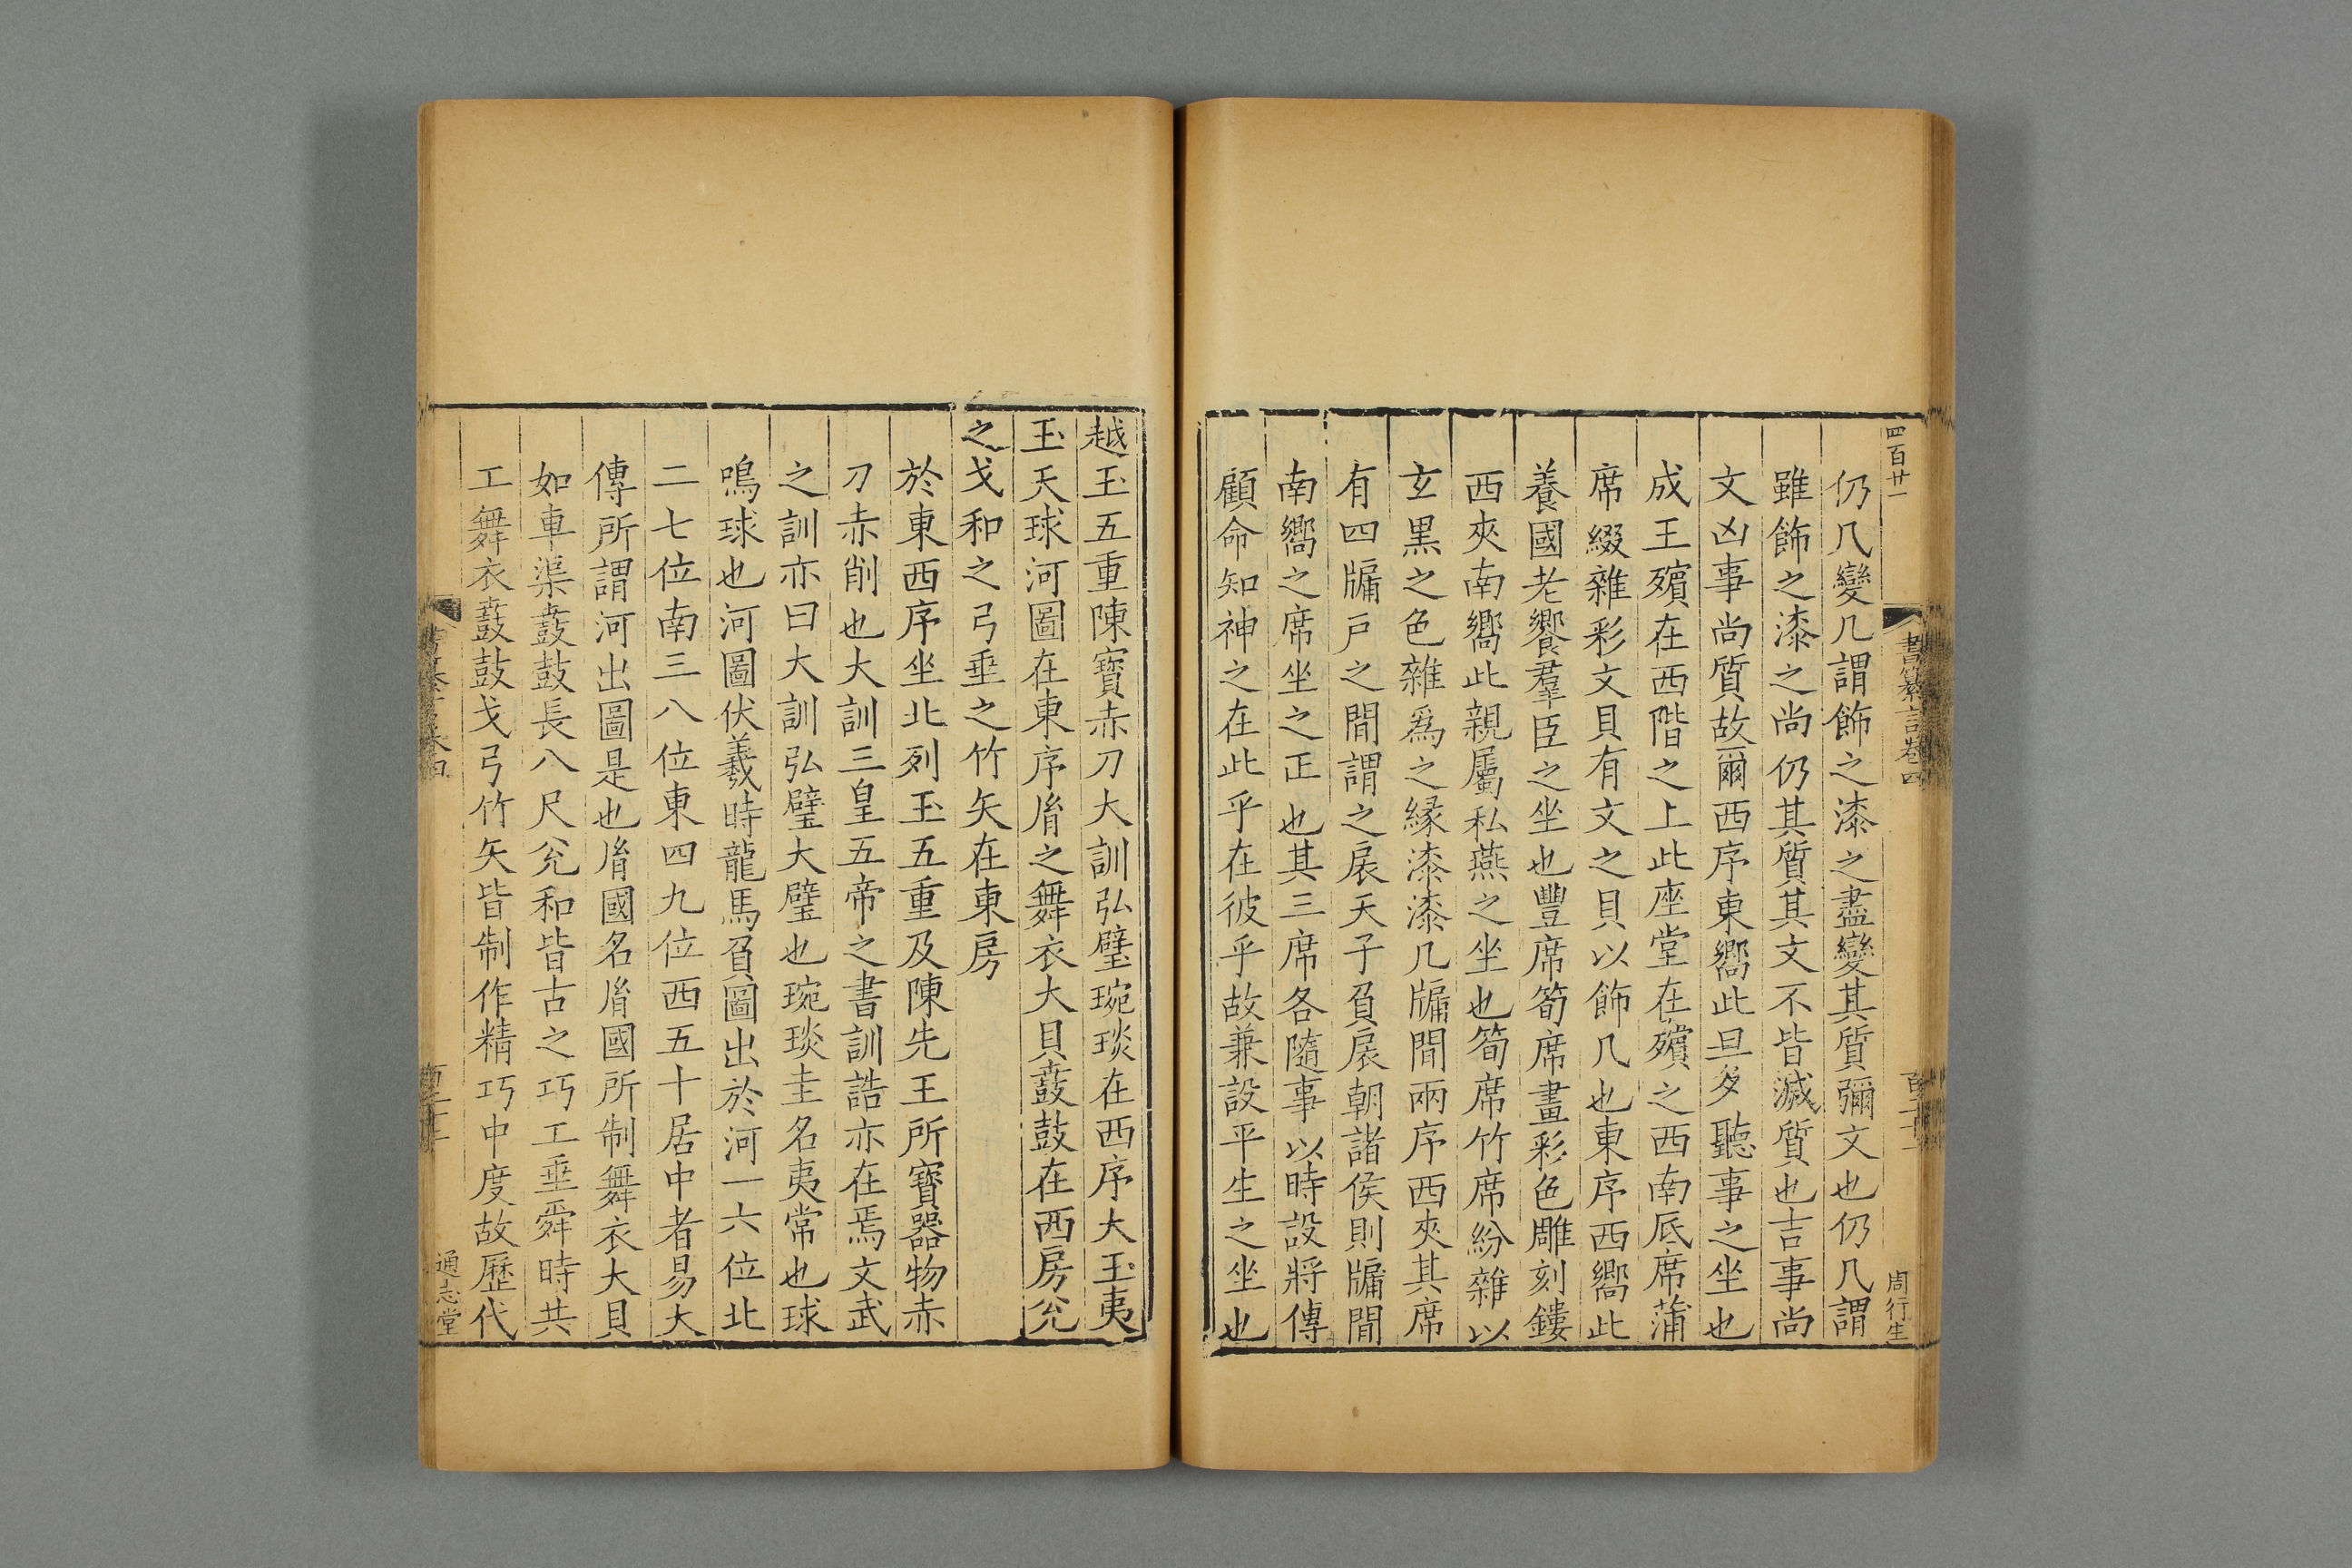 四百廿一
書纂言卷四
周行生
仍几變几謂飾之漆之盡變其質彌文也仍几謂
雖飾之漆之尚仍其質其文不皆滅質也吉事尚
文凶事尚質故爾西序東嚮此旦夕聽事之坐也
成王殯在西階之上此座堂在殯之西南厎席蒲
席綴雜彩文貝有文之貝以飾几也東序西嚮此
養國老饗羣臣之坐也豐席筍席畫彩色雕刻鏤
西夾南嚮此親屬私燕之坐也筍席竹席紛雜以
玄黑之色雜爲之緣漆漆几牖間兩序西夾其席
有四牖戶之間謂之扆天子負扆朝諸侯則牖間
南嚮之席坐之正也其三席各隨事以時設將傳
顧命知神之在此乎在彼乎故兼設平生之坐也
越玉五重陳寶赤刀大訓弘璧琬琰在西序大玉夷
玉天球河圖在東序胤之舞衣大貝鼖鼓在西房兊
之戈和之弓垂之竹矢在東房
於東西序坐北列玉五重及陳先王所寶器物赤
刀赤削也大訓三皇五帝之書訓誥亦在焉文武
之訓亦曰大訓弘璧大璧也琬琰圭名夷常也球
鳴球也河圖伏羲時龍馬負圖出於河一六位北
二七位南三八位東四九位西五十居中者易大
傳所謂河出圖是也胤國名胤國所制舞衣大貝
如車渠鼖鼓長八尺兊和皆古之巧工垂舜時共
工舞衣鼖鼓戈弓竹矢皆制作精巧中度故歷代
通志堂